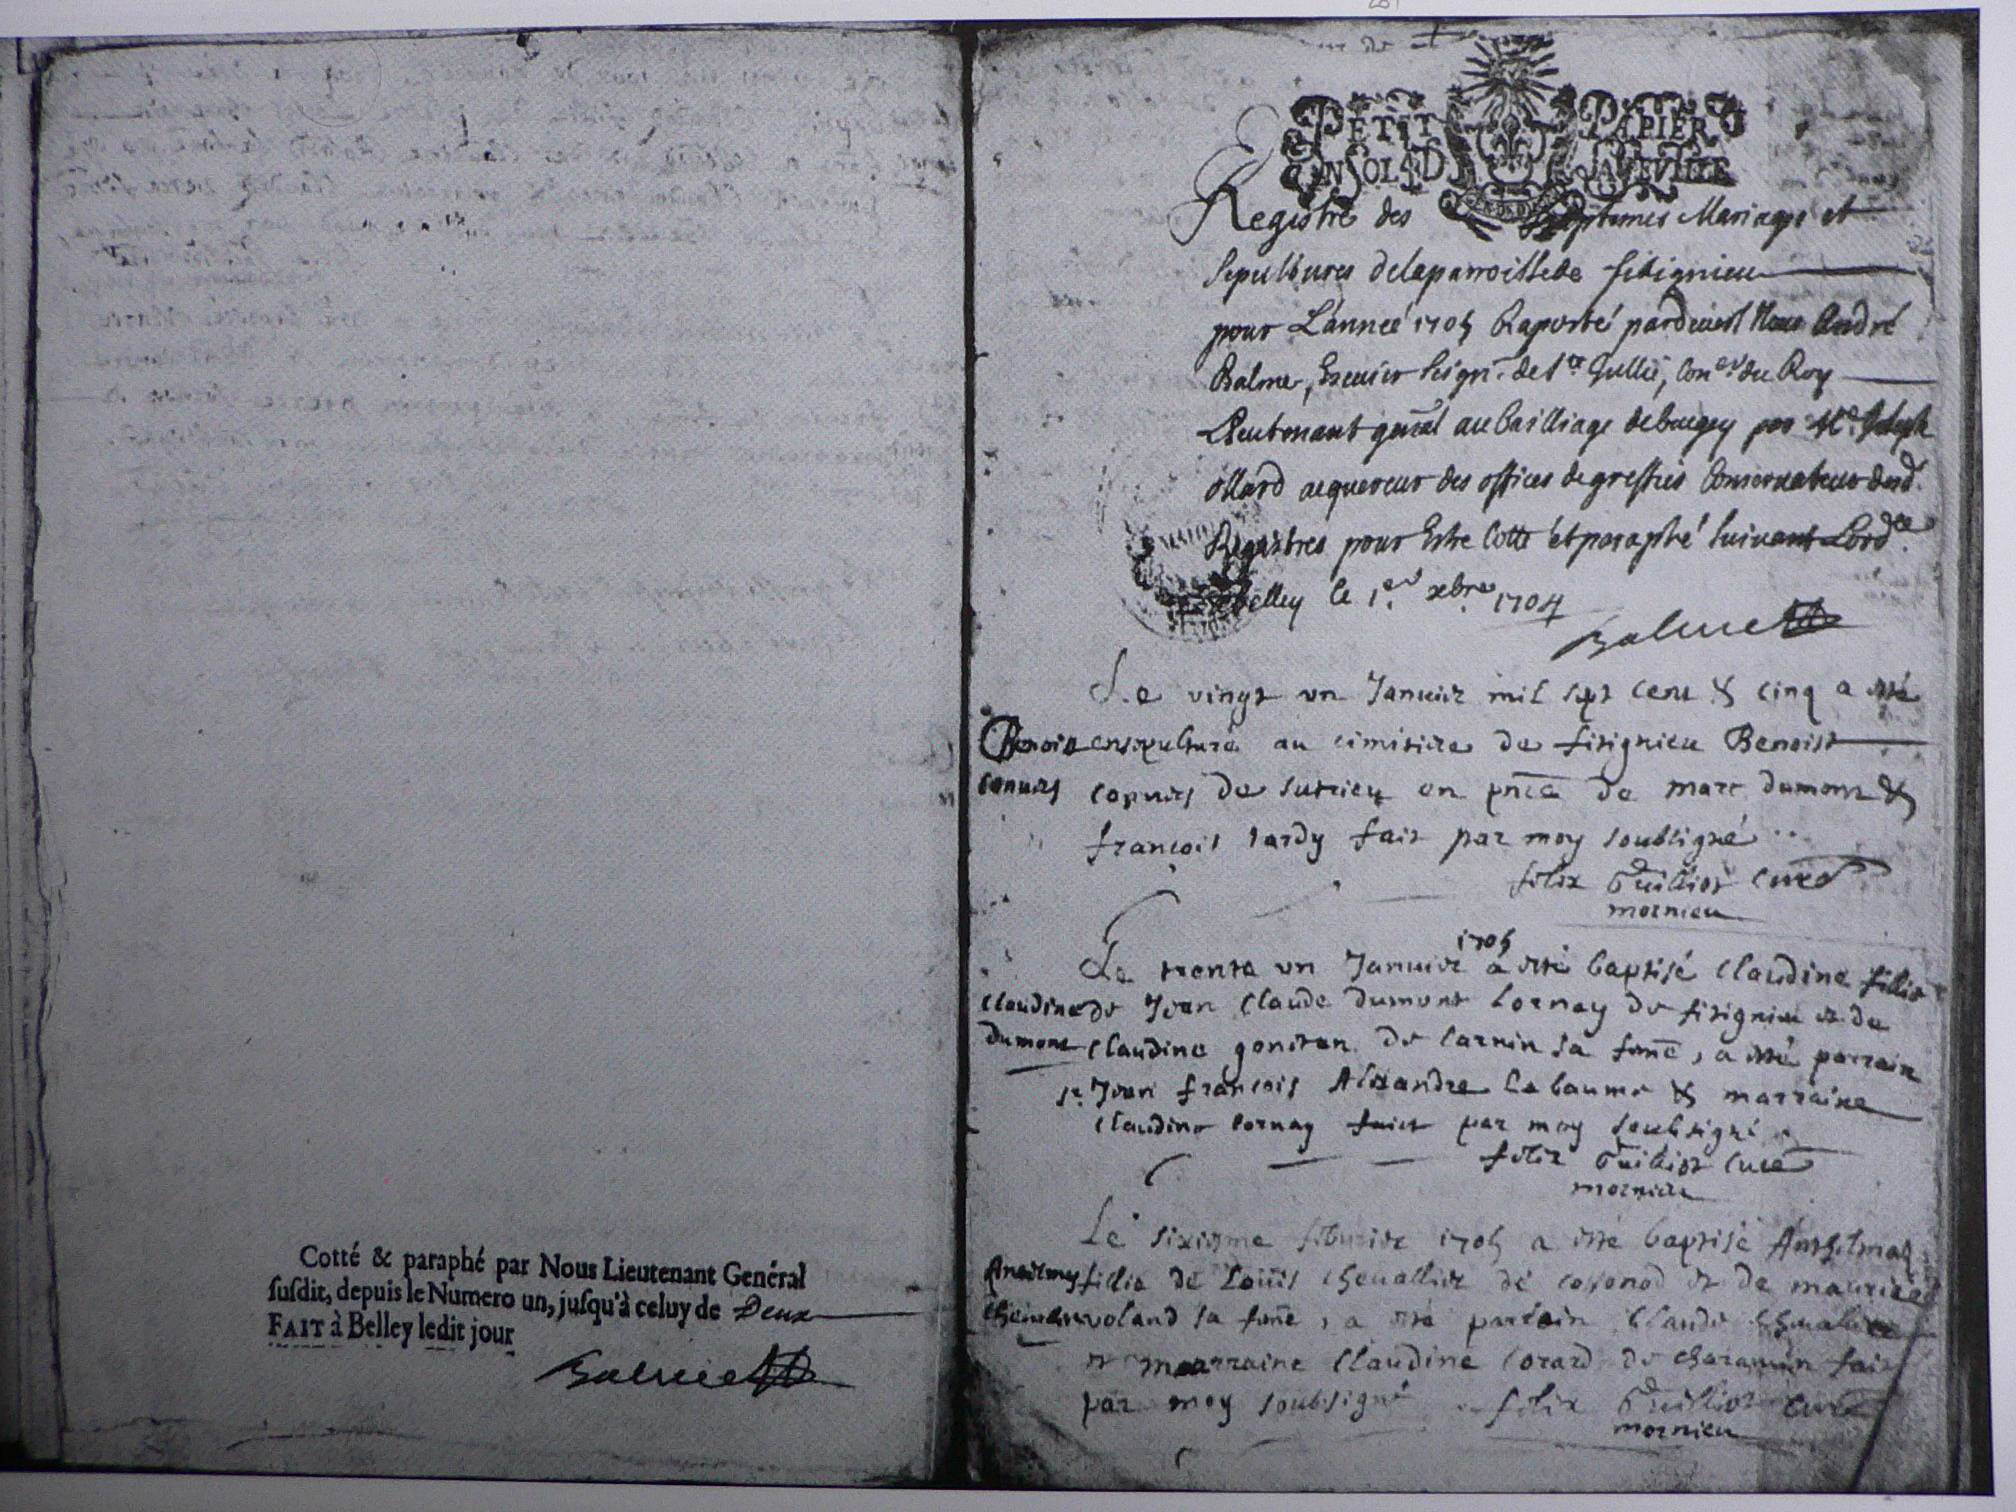 Cotté & paraphé par Nous Lieutenant Genéral
susdit, depuis le Numero un, jusqu'à celuy de Deux
FAIT à Belley ledit jour
Balme
PETIT PAPIER
UN SOL SIX D LA FEUILLE
Registre des Baptemes Mariages et
sepultures de la parroisse de fitignieu
pour L'anneé 1705 Raporté pardevant Nous André
Balme, Escuier seigr. de Ste Jullie, Coner. du Roy
Lieutenant genral au Bailliage de bugey par Me. Joseph
ollard acquereur des offices de greffiers Conservateur desd.
Registres pour Estre Cotté et paraphé suivant Lordce.
a Belley le 1er. xbre. 1704
Balme
Le vingt un Januier mil sept cent & cinq a esté
Benoist ensepulturé au cimitiere de fitignieu Benoist
de sutrieu en pnce de marc dumont &
françois tardy fait par moy soubsigné
felix Guillot Curé
mornieu
1705
Le trente un Januier a esté baptisé Claudine fillie
Claudine de Jean Claude dumont Cornay de fitignieu et de
dumont Claudine de sa fame, a esté parrain
sr. Jean françois Alexandre la baume & marraine
Claudine Cornay fait par moy soubsigné
felix Guillot Curé
mornieu
Le sixieme feburier 1705 a esté baptisé
fillie de Louis Cheuallier de et de
sa fame, a esté parrain Claude Cheualier
et marraine Claudine de fait
par moy soubsigné felix Guillot Curé
mornieu